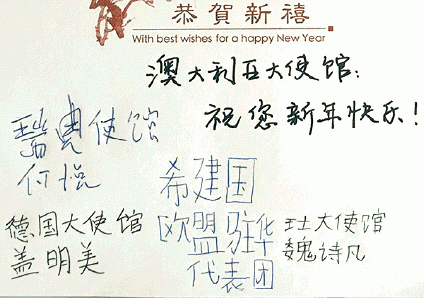 恭賀新禧
With best wishes for a happy New Year
澳大利亚大使馆:
祝您新年快乐!
瑞典使馆
何悦
希建国
欧盟驻华
代表团
德国大使馆
盖明美
瑞士大使馆
魏诗凡